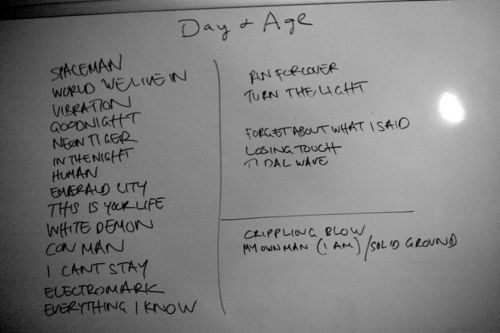 Day & Age
SPACEMAN
WORLD WE LIVE IN
VIBRATION
GOODNIGHT
NEON TIGER
IN THE NIGHT
HUMAN
EMERALD CITY
THIS IS YOUR LIFE
WHITE DEMON
CON MAN
I CANT STAY
ELECTROMARK
EVERYTHING I KNOW
RUN FOR COVER
TURN THE LIGHT
FORGET ABOUT WHAT I SAID
LOSING TOUCH
TIDAL WAVE
CRIPPLING BLOW
MY OWN MAN (I AM) / SOLID GROUND